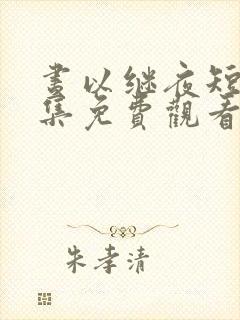 晝以继夜短
集免費觀看
朱孝清